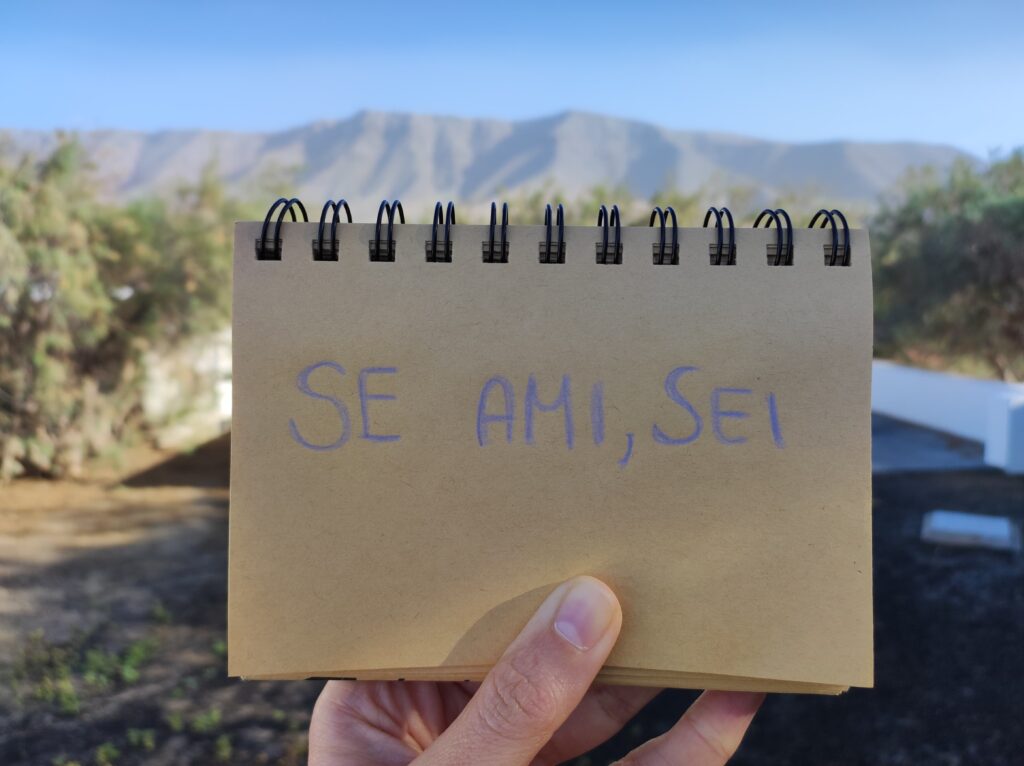 SE AMI, SEI